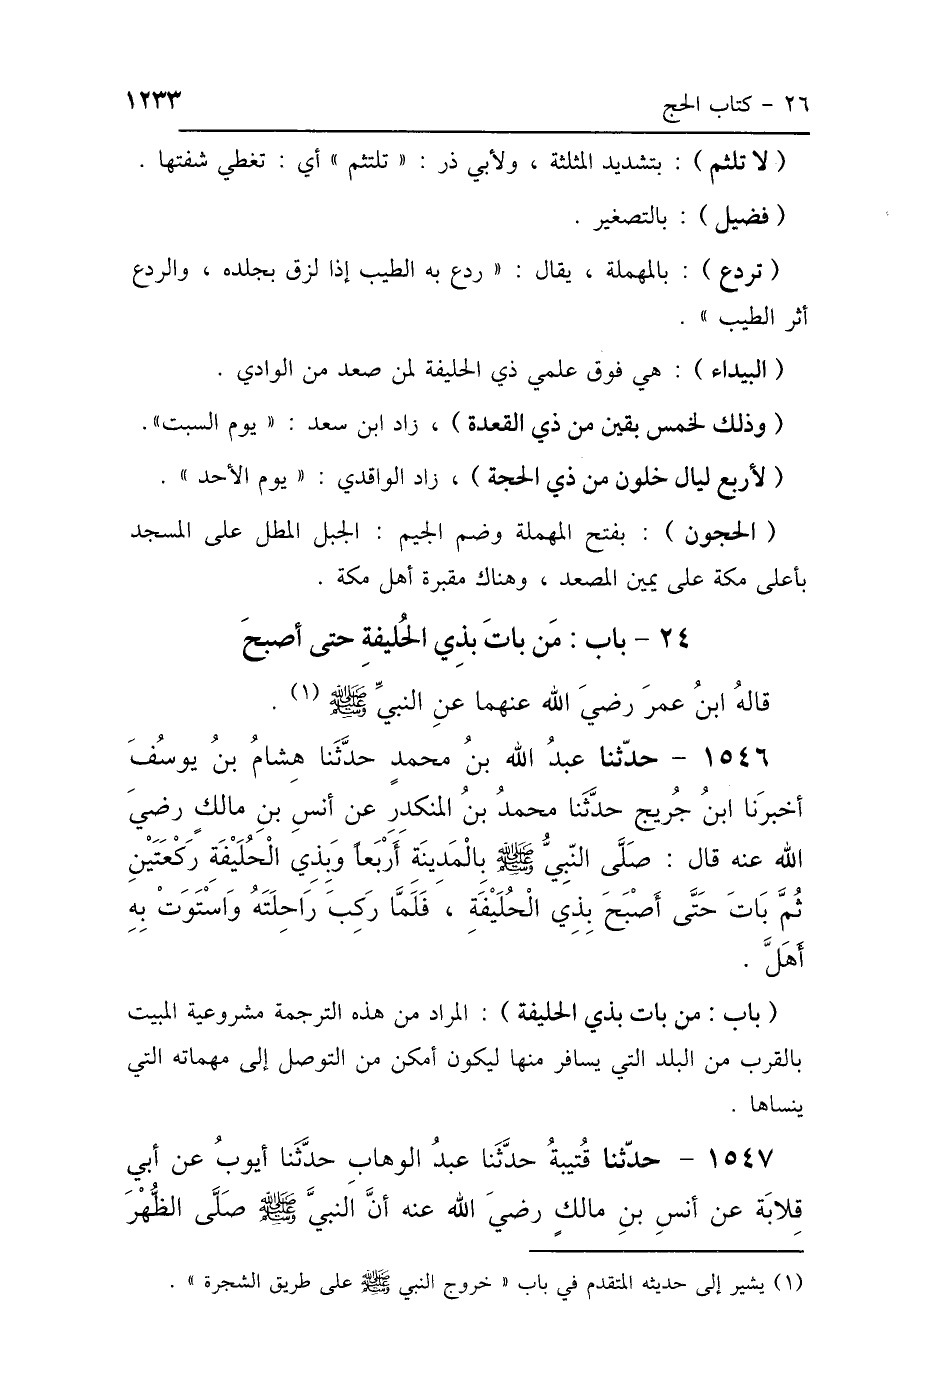 ٢٦ - كتاب الحج ١٢٣٣
( لا تلثم ) : بتشديد المثلثة ، ولأبي ذر : « تلتثم » أي : تغطي شفتها .
( فضيل ) : بالتصغير .
( تردع ) : بالمهملة ، يقال : « ردع به الطيب إذا لزق بجلده ، والردع
أثر الطيب » .
( البيداء ) : هي فوق علمي ذي الحليفة لمن صعد من الوادي .
( وذلك لخمس بقين من ذي القعدة ) ، زاد ابن سعد : « يوم السبت».
( لأربع ليال خلون من ذي الحجة ) ، زاد الواقدي : « يوم الأحد » .
( الحجون ) : بفتح المهملة وضم الجيم : الجبل المطل على المسجد
بأعلى مكة على يمين المصعد ، وهناك مقبرة أهل مكة .
٢٤ - باب : مَن باتَ بذِي الحُليفةِ حتى أصبحَ
قالهُ ابنُ عمرَ رضيَ الله عنهما عنِ النبيِّ ﷺ (١) .
١٥٤٦ - حدّثنا عبدُ الله بنُ محمدٍ حدَّثَنا هِشامُ بنُ يوسُفَ
أخبرَنا ابنُ جُريج حدَّثَنا محمدُ بنُ المنكدِرِ عن أنسِ بنِ مالكٍ رضيَ
الله عنه قال : صلَّى النّبيُّ ﷺ بِالْمَدِينَةِ أَرْبَعاً وَبِذِي الْحُلَيْفَةِ رَكْعَتَيْنِ
ثُمَّ بَاتَ حَتَّى أَصْبَحَ بِذِي الْحُلَيْفَةِ ، فَلَمَّا رَكِبَ رَاحِلَتَهُ وَاسْتَوَتْ بِهِ
أَهَلَّ .
( باب : من بات بذي الحليفة ) : المراد من هذه الترجمة مشروعية المبيت
بالقرب من البلد التي يسافر منها ليكون أمكن من التوصل إلى مهماته التي
ينساها .
١٥٤٧ - حدّثنا قُتيبةُ حدَّثَنا عبدُ الوهابِ حدَّثَنا أيوبُ عن أبي
قِلابَة عن أنسِ بنِ مالكٍ رضيَ الله عنه أنَّ النبيَّ ﷺ صلَّى الظُّهْرَ
(١) يشير إلى حديثه المتقدم في باب « خروج النبي ﷺ على طريق الشجرة » .